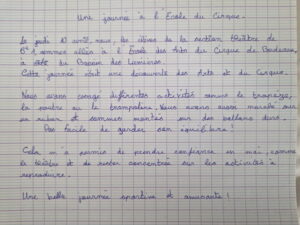 Une journée à l'École du Cirque.
Le jeudi 10 avril, nous, les élèves de la section théâtre de
6e1 sommes allés à l'École des Arts du Cirque de Bordeaux,
à côté du Bassin des Lumières.
Cette journée était une découverte des Arts et du Cirque.
Nous avons essayé différentes activités comme le trapèze,
la poutre ou le trampoline. Nous avons aussi marché sur
un ruban et sommes montés sur des ballons durs.
Pas facile de garder son équilibre !
Cela m'a permis de prendre confiance en moi, comme
le théâtre et de rester concentrée sur les activités à
reproduire.
Une belle journée sportive et amusante !